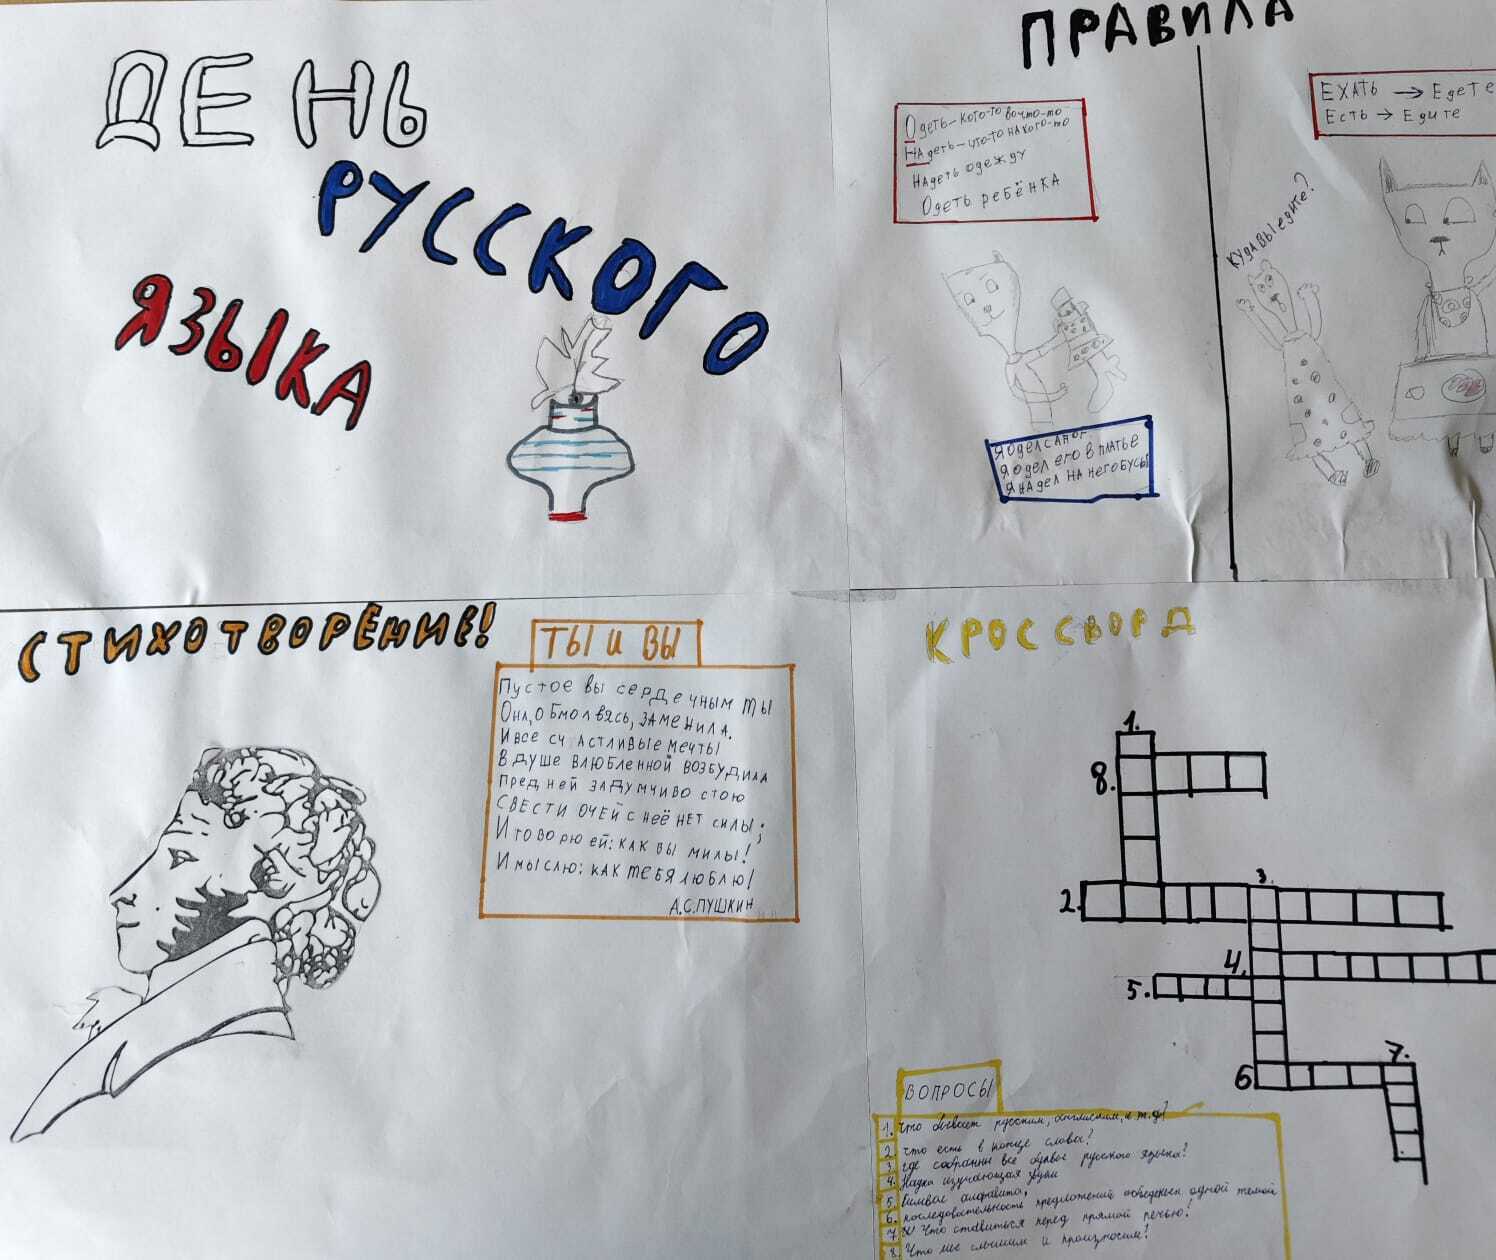 ДЕНЬ
РУССКОГО
ЯЗЫКА
ПРАВИЛА
Одеть-кого-то во что-то
НАдеть-что-то на кого-то
НАдеть одежду
Одеть ребёнка
ЕХАТЬ → ЕдЕТЕ
Есть → Едите
КУДА ВЫ едите?
Я одел его в платье
Я надел на него бусы
СТИХОТВОРЕНИЕ!
ТЫ И ВЫ
Пустое вы сердечным ты
Она, обмолвясь, заменила.
И все счастливые мечты
В душе влюбленной возбудила
Пред ней задумчиво стою
Свести очей с неё нет силы;
И говорю ей: как вы милы!
И мыслю: как тебя люблю!
А.С.ПУШКИН
КРОССВОРД
1.
8.
2.
3.
4.
5.
7.
6
ВОПРОСЫ
1. Что бывает русским, английским, и т.д?
2 Что есть в конце слова?
3. Где собранны все буквы русского языка?
4. Наука изучающая звуки
5 Символ алфавита,
6. последовательность предложений обьеденён одной темой
7. Что ставиться перед прямой речью?
8. Что мы слышим и произносим?